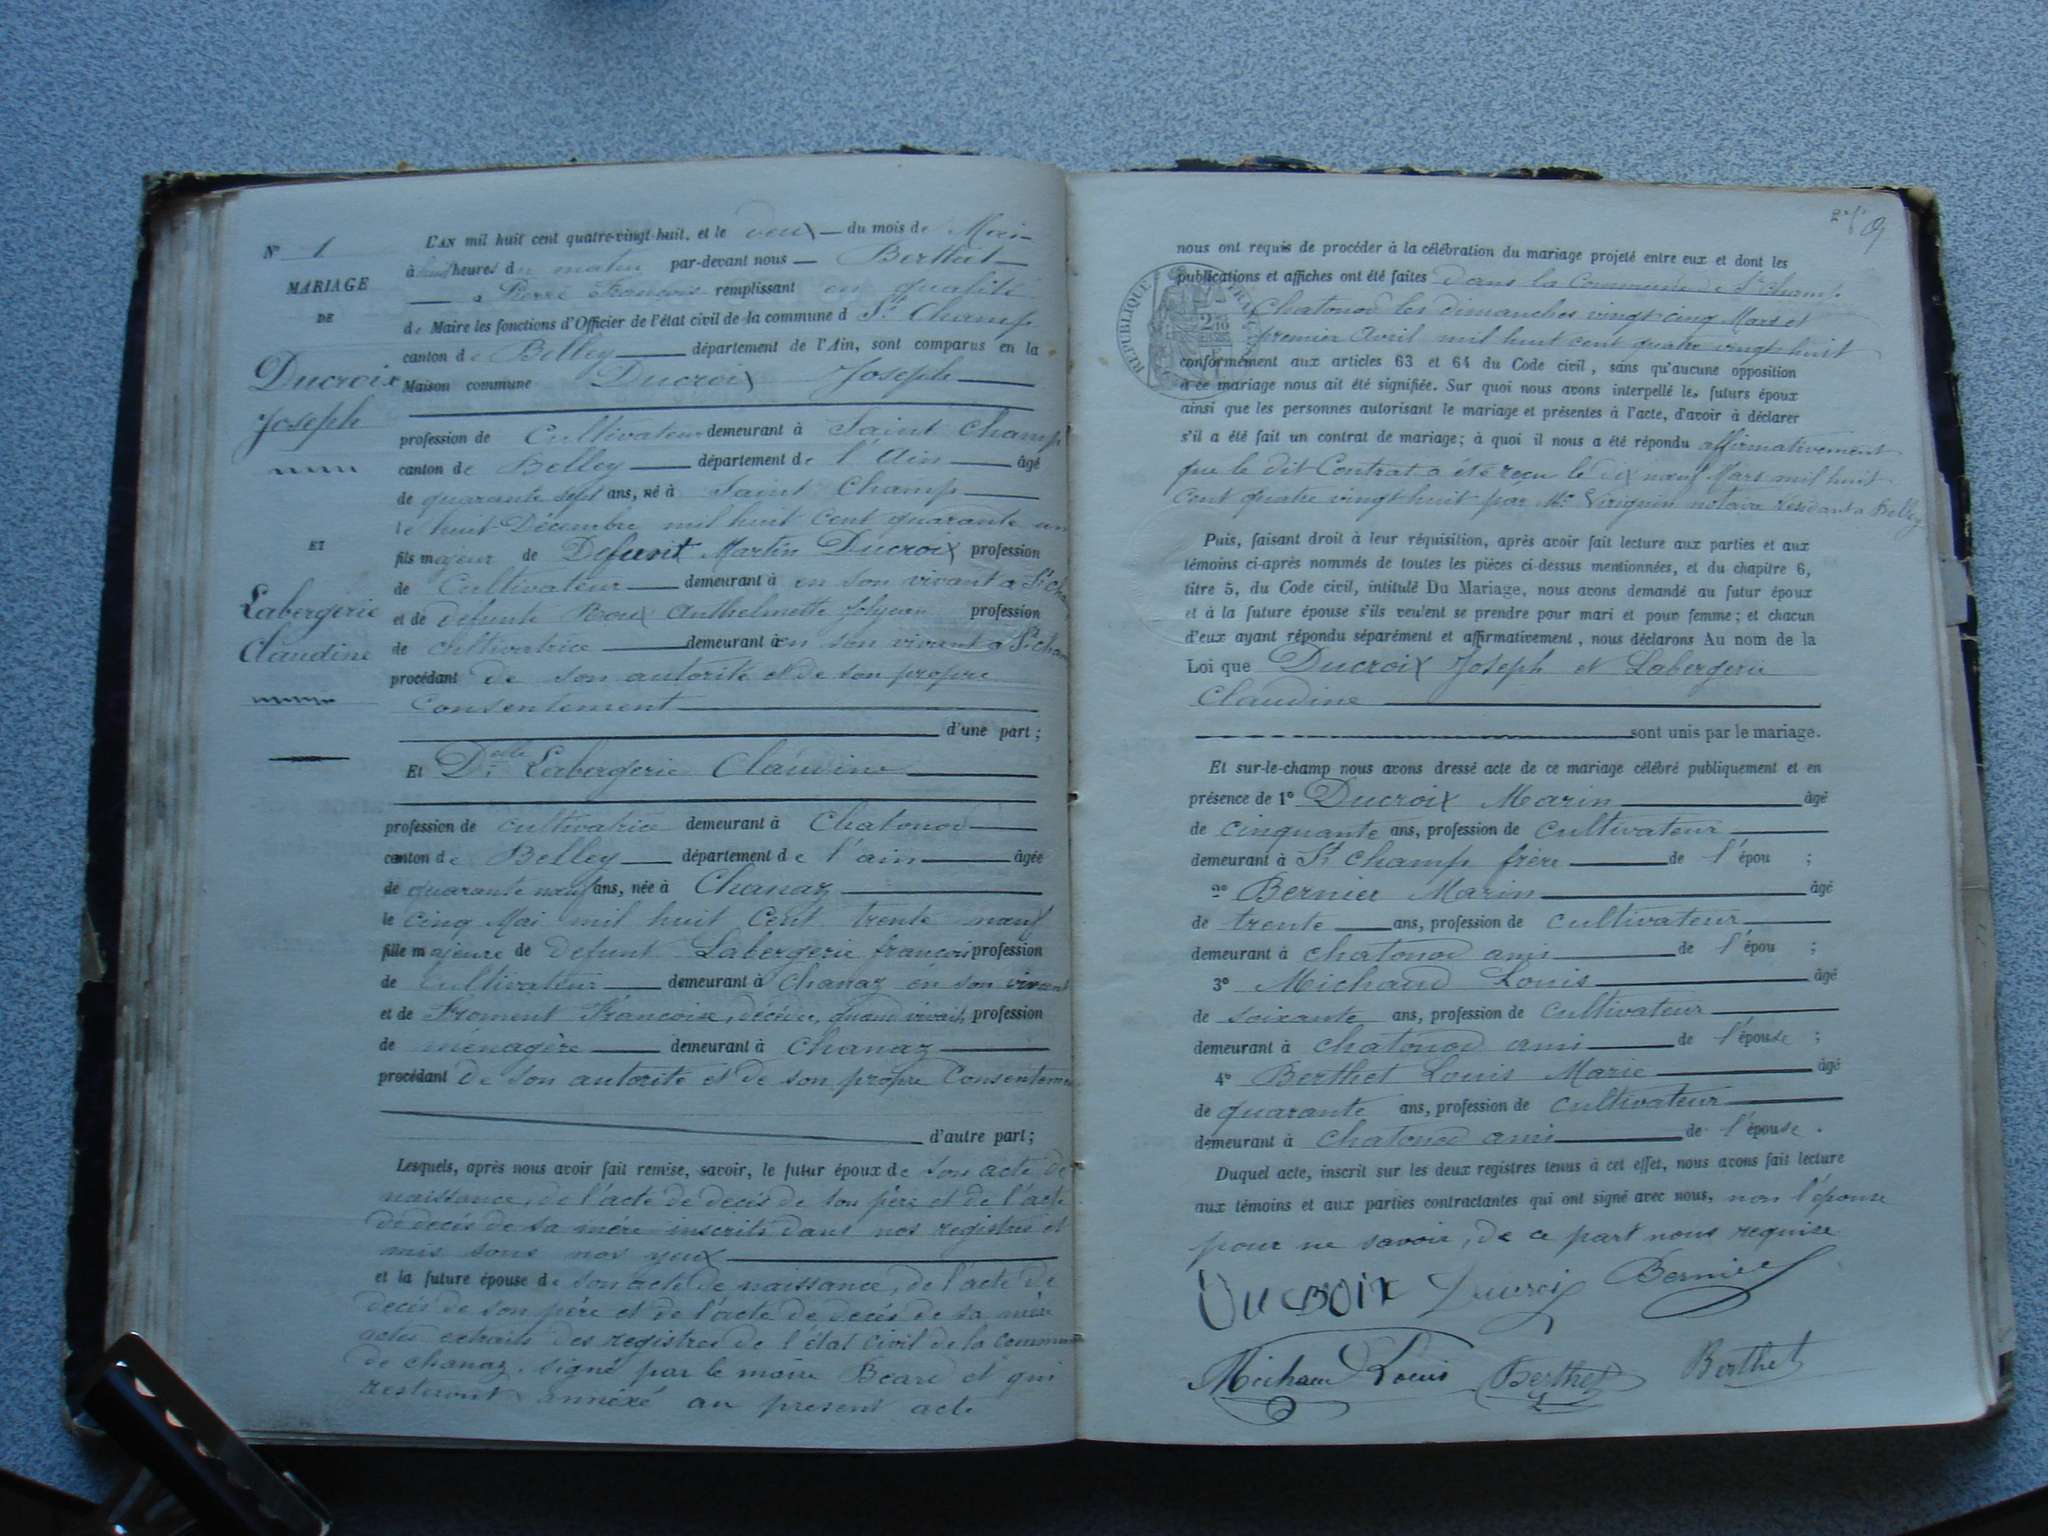 N° 1
MARIAGE
DE
Ducroix
Joseph
ET
Labergerie
Claudine
L'AN mil huit cent quatre-vingt-huit, et le deux du mois de Mai
à huit heures du matin par-devant nous Berthet
Pierre François remplissant en qualité
de Maire les fonctions d'Officier de l'état civil de la commune d St Champ
canton de Belley département de l'Ain, sont comparus en la
Maison commune Ducroix Joseph
profession de Cultivateur demeurant à Saint Champ
canton de Belley département de l'Ain âgé
de quarante sept ans, né à Saint Champ
le huit Décembre mil huit cent quarante un
fils majeur de Défunt Martin Ducroix profession
de Cultivateur demeurant à en son vivant a St Cha
et de défunte Roux Anthelmette profession
de cultivatrice demeurant à en son vivant a St cham
procédant de son autorité et de son propre
Consentement
d'une part ;
Et Delle Labergerie Claudine
profession de cultivatrice demeurant à Chatonod
canton de Belley département de l'ain âgée
de quarante neuf ans, née à Chanaz
le cinq Mai mil huit Cent trente neuf
fille majeure de Défunt Labergerie françois profession
de Cultivateur demeurant à Chanaz en son vivant
et de Froment Francoise, décédée, quand vivait, profession
de ménagère demeurant à Chanaz
procédant de son autorité et de son propre Consenteme
d'autre part ;
Lesquels, après nous avoir fait remise, savoir, le futur époux de son acte de
naissance, de l'acte de décés de son père et de l'acte
de decés de sa mère inscrits dans nos registres et
mis sous nos yeux
et la future épouse de son acte de naissance, de l'acte de
décés de son père et de l'acte de decés de sa mère
actes extraits des registres de l'état civil de la commune
de chanaz. signé par le maire Beard et qui
resteront annéxé au present acte
9
nous ont requis de procéder à la célébration du mariage projeté entre eux et dont les
publications et affiches ont été faites dans la Commune de St champ
Chatonod les dimanches vingt cinq Mars et
premier Avril mil huit cent quatre vingt huit
conformément aux articles 63 et 64 du Code civil, sans qu'aucune opposition
à ce mariage nous ait été signifiée. Sur quoi nous avons interpellé les futurs époux
ainsi que les personnes autorisant le mariage et présentes à l'acte, d'avoir à déclarer
s'il a été fait un contrat de mariage ; à quoi il nous a été répondu affirmativement
que le dit Contrat a été reçu le dix neuf Mars mil huit
cent quatre vingt huit par Me notaire résidant a Belley
Puis, faisant droit à leur réquisition, après avoir fait lecture aux parties et aux
témoins ci-après nommés de toutes les pièces ci-dessus mentionnées, et du chapitre 6,
titre 5, du Code civil, intitulé Du Mariage, nous avons demandé au futur époux
et à la future épouse s'ils veulent se prendre pour mari et pour femme ; et chacun
d'eux ayant répondu séparément et affirmativement, nous déclarons Au nom de la
Loi que Ducroix Joseph et Labergerie
Claudine
sont unis par le mariage.
Et sur-le-champ nous avons dressé acte de ce mariage célébré publiquement et en
présence de 1° Ducroix Marin âgé
de cinquante ans, profession de cultivateur
demeurant à St champ frère de l'épou ;
2° Bernier Marin âgé
de trente ans, profession de cultivateur
demeurant à chatonod ami de l'épou ;
3° Michaud Louis âgé
de soixante ans, profession de cultivateur
demeurant à chatonod ami de l'épouse ;
4° Berthet Louis Marie âgé
de quarante ans, profession de cultivateur
demeurant à chatonod ami de l'épouse.
Duquel acte, inscrit sur les deux registres tenus à cet effet, nous avons fait lecture
aux témoins et aux parties contractantes qui ont signé avec nous, non l'épouse
pour ne savoir, de ce part nous requise
DUCROIX Ducroix Bernier
Michaud Louis Berthet Berthet